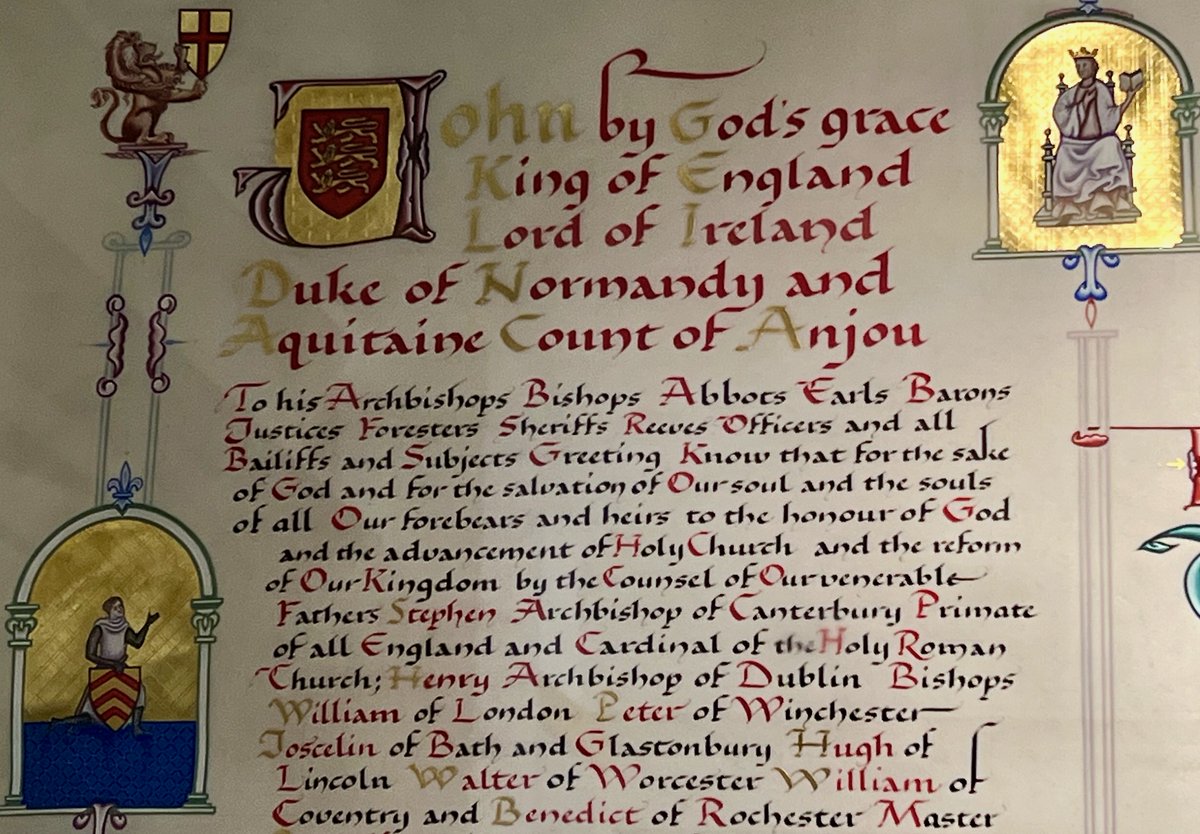 John by God's grace
King of England
Lord of Ireland
Duke of Normandy and
Aquitaine Count of Anjou
To his Archbishops Bishops Abbots Earls Barons
Justices Foresters Sheriffs Reeves Officers and all
Bailiffs and Subjects Greeting Know that for the sake
of God and for the salvation of Our soul and the souls
of all Our forebears and heirs to the honour of God
and the advancement of Holy Church and the reform
of Our Kingdom by the Counsel of Our venerable
Fathers Stephen Archbishop of Canterbury Primate
of all England and Cardinal of the Holy Roman
Church; Henry Archbishop of Dublin Bishops
William of London Peter of Winchester
Joscelin of Bath and Glastonbury Hugh of
Lincoln Walter of Worcester William of
Coventry and Benedict of Rochester Master